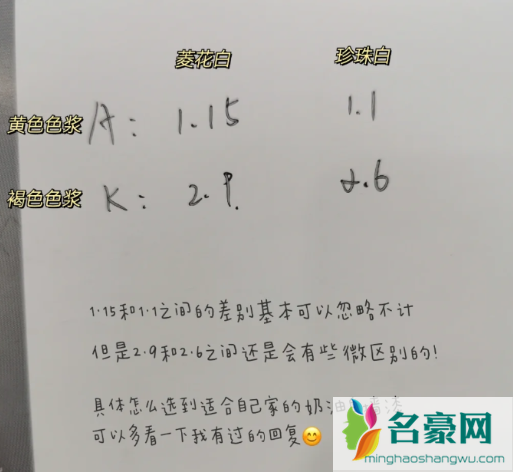 菱花白 珍珠白
黄色色浆 A: 1.15 1.1
褐色色浆 K: 2.9. 2.6
1.15和1.1之间的差别基本可以忽略不计
但是2.9和2.6之间还是会有些微区别的!
具体怎么选到适合自己家的奶油
可以多看一下我有过的回复😊
名豪网
minghaoshangwu.com